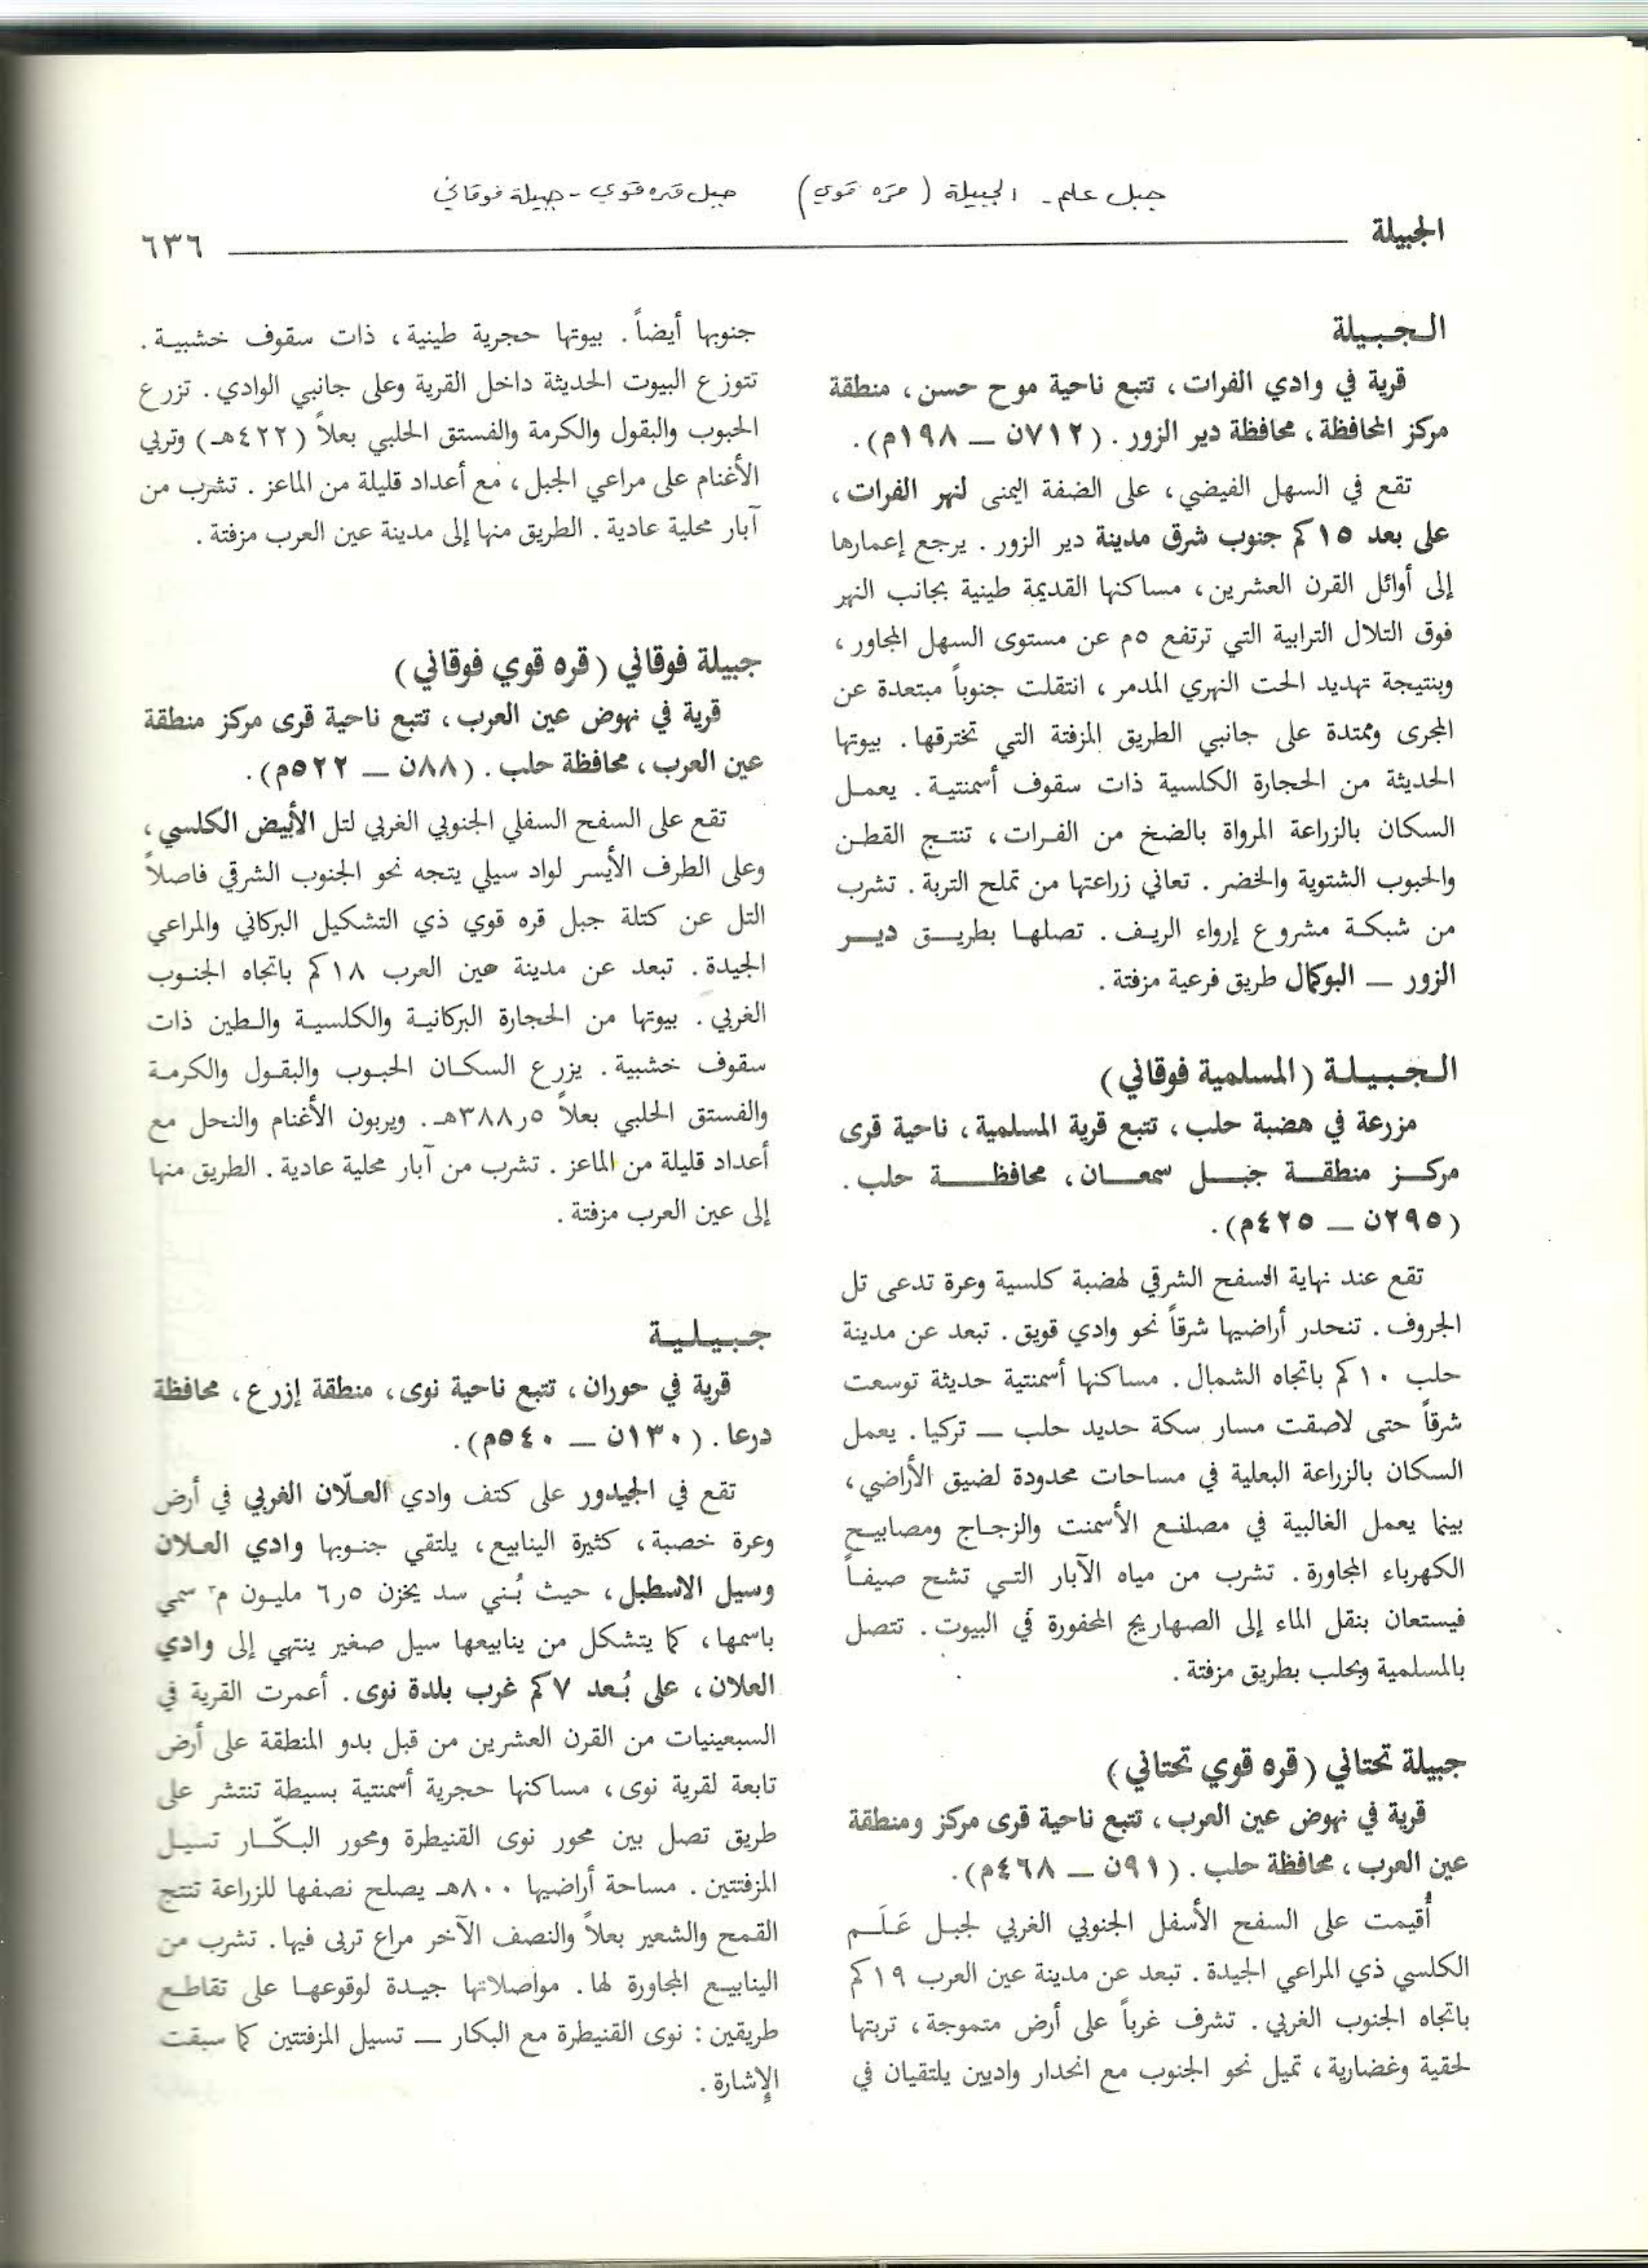 جبل علم - الجبيلة (قره قوي) جبل قره قوي - جبيلة فوقاني
الجبيلة
٦٣٦
الـجـبـيلة
قرية في وادي الفرات، تتبع ناحية موح حسن، منطقة
مركز المحافظة، محافظة دير الزور. (٧١٢ن — ١٩٨م).
تقع في السهل الفيضي، على الضفة اليمنى لنهر الفرات،
على بعد ١٥كم جنوب شرق مدينة دير الزور. يرجع إعمارها
إلى أوائل القرن العشرين، مساكنها القديمة طينية بجانب النهر
فوق التلال الترابية التي ترتفع ٥م عن مستوى السهل المجاور،
وبنتيجة تهديد الحت النهري المدمر، انتقلت جنوباً مبتعدة عن
المجرى وممتدة على جانبي الطريق المزفتة التي تخترقها. بيوتها
الحديثة من الحجارة الكلسية ذات سقوف أسمنتية. يعمل
السكان بالزراعة المرواة بالضخ من الفرات، تنتج القطن
والحبوب الشتوية والخضر. تعاني زراعتها من تملح التربة. تشرب
من شبكة مشروع إرواء الريف. تصلها بطريق دير
الزور — البوكمال طريق فرعية مزفتة.
الـجـبـيـلـة (المسلمية فوقاني)
مزرعة في هضبة حلب، تتبع قرية المسلمية، ناحية قرى
مركز منطقة جبل سمعان، محافظة حلب.
(٢٩٥ن — ٤٢٥م).
تقع عند نهاية السفح الشرقي لهضبة كلسية وعرة تدعى تل
الجروف. تنحدر أراضيها شرقاً نحو وادي قويق. تبعد عن مدينة
حلب ١٠كم باتجاه الشمال. مساكنها أسمنتية حديثة توسعت
شرقاً حتى لاصقت مسار سكة حديد حلب — تركيا. يعمل
السكان بالزراعة البعلية في مساحات محدودة لضيق الأراضي،
بينما يعمل الغالبية في مصانع الأسمنت والزجاج ومصابيح
الكهرباء المجاورة. تشرب من مياه الآبار التي تشح صيفاً
فيستعان بنقل الماء إلى الصهاريج المحفورة في البيوت. تتصل
بالمسلمية وبحلب بطريق مزفتة.
جبيلة تحتاني (قره قوي تحتاني)
قرية في نهوض عين العرب، تتبع ناحية قرى مركز ومنطقة
عين العرب، محافظة حلب. (٩١ن — ٤٦٨م).
أُقيمت على السفح الأسفل الجنوبي الغربي لجبل عَلَم
الكلسي ذي المراعي الجيدة. تبعد عن مدينة عين العرب ١٩كم
باتجاه الجنوب الغربي. تشرف غرباً على أرض متموجة، تربتها
لحقية وغضارية، تميل نحو الجنوب مع انحدار واديين يلتقيان في
جنوبها أيضاً. بيوتها حجرية طينية، ذات سقوف خشبية.
تتوزع البيوت الحديثة داخل القرية وعلى جانبي الوادي. تزرع
الحبوب والبقول والكرمة والفستق الحلبي بعلاً (٤٢٢هـ) وتربي
الأغنام على مراعي الجبل، مع أعداد قليلة من الماعز. تشرب من
آبار محلية عادية. الطريق منها إلى مدينة عين العرب مزفتة.
جبيلة فوقاني (قره قوي فوقاني)
قرية في نهوض عين العرب، تتبع ناحية قرى مركز منطقة
عين العرب، محافظة حلب. (٨٨ن — ٥٢٢م).
تقع على السفح السفلي الجنوبي الغربي لتل الأبيض الكلسي،
وعلى الطرف الأيسر لواد سيلي يتجه نحو الجنوب الشرقي فاصلاً
التل عن كتلة جبل قره قوي ذي التشكيل البركاني والمراعي
الجيدة. تبعد عن مدينة عين العرب ١٨كم باتجاه الجنوب
الغربي. بيوتها من الحجارة البركانية والكلسية والطين ذات
سقوف خشبية. يزرع السكان الحبوب والبقول والكرمة
والفستق الحلبي بعلاً ٣٨٨٫٥هـ. ويربون الأغنام والنحل مع
أعداد قليلة من الماعز. تشرب من آبار محلية عادية. الطريق منها
إلى عين العرب مزفتة.
جـبـيـلـيـة
قرية في حوران، تتبع ناحية نوى، منطقة إزرع، محافظة
درعا. (١٣٠ن — ٥٤٠م).
تقع في الجيدور على كتف وادي العلّان الغربي في أرض
وعرة خصبة، كثيرة الينابيع، يلتقي جنوبها وادي العلان
وسيل الاسطبل، حيث بُني سد يخزن ٦٫٥ مليون م٣ سمي
باسمها، كما يتشكل من ينابيعها سيل صغير ينتهي إلى وادي
العلان، على بُعد ٧كم غرب بلدة نوى. أعمرت القرية في
السبعينيات من القرن العشرين من قبل بدو المنطقة على أرض
تابعة لقرية نوى، مساكنها حجرية أسمنتية بسيطة تنتشر على
طريق تصل بين محور نوى القنيطرة ومحور البكّار تسيل
المزفتتين. مساحة أراضيها ٨٠٠هـ يصلح نصفها للزراعة تنتج
القمح والشعير بعلاً والنصف الآخر مراع تربى فيها. تشرب من
الينابيع المجاورة لها. مواصلاتها جيدة لوقوعها على تقاطع
طريقين: نوى القنيطرة مع البكار — تسيل المزفتتين كما سبقت
الإشارة.